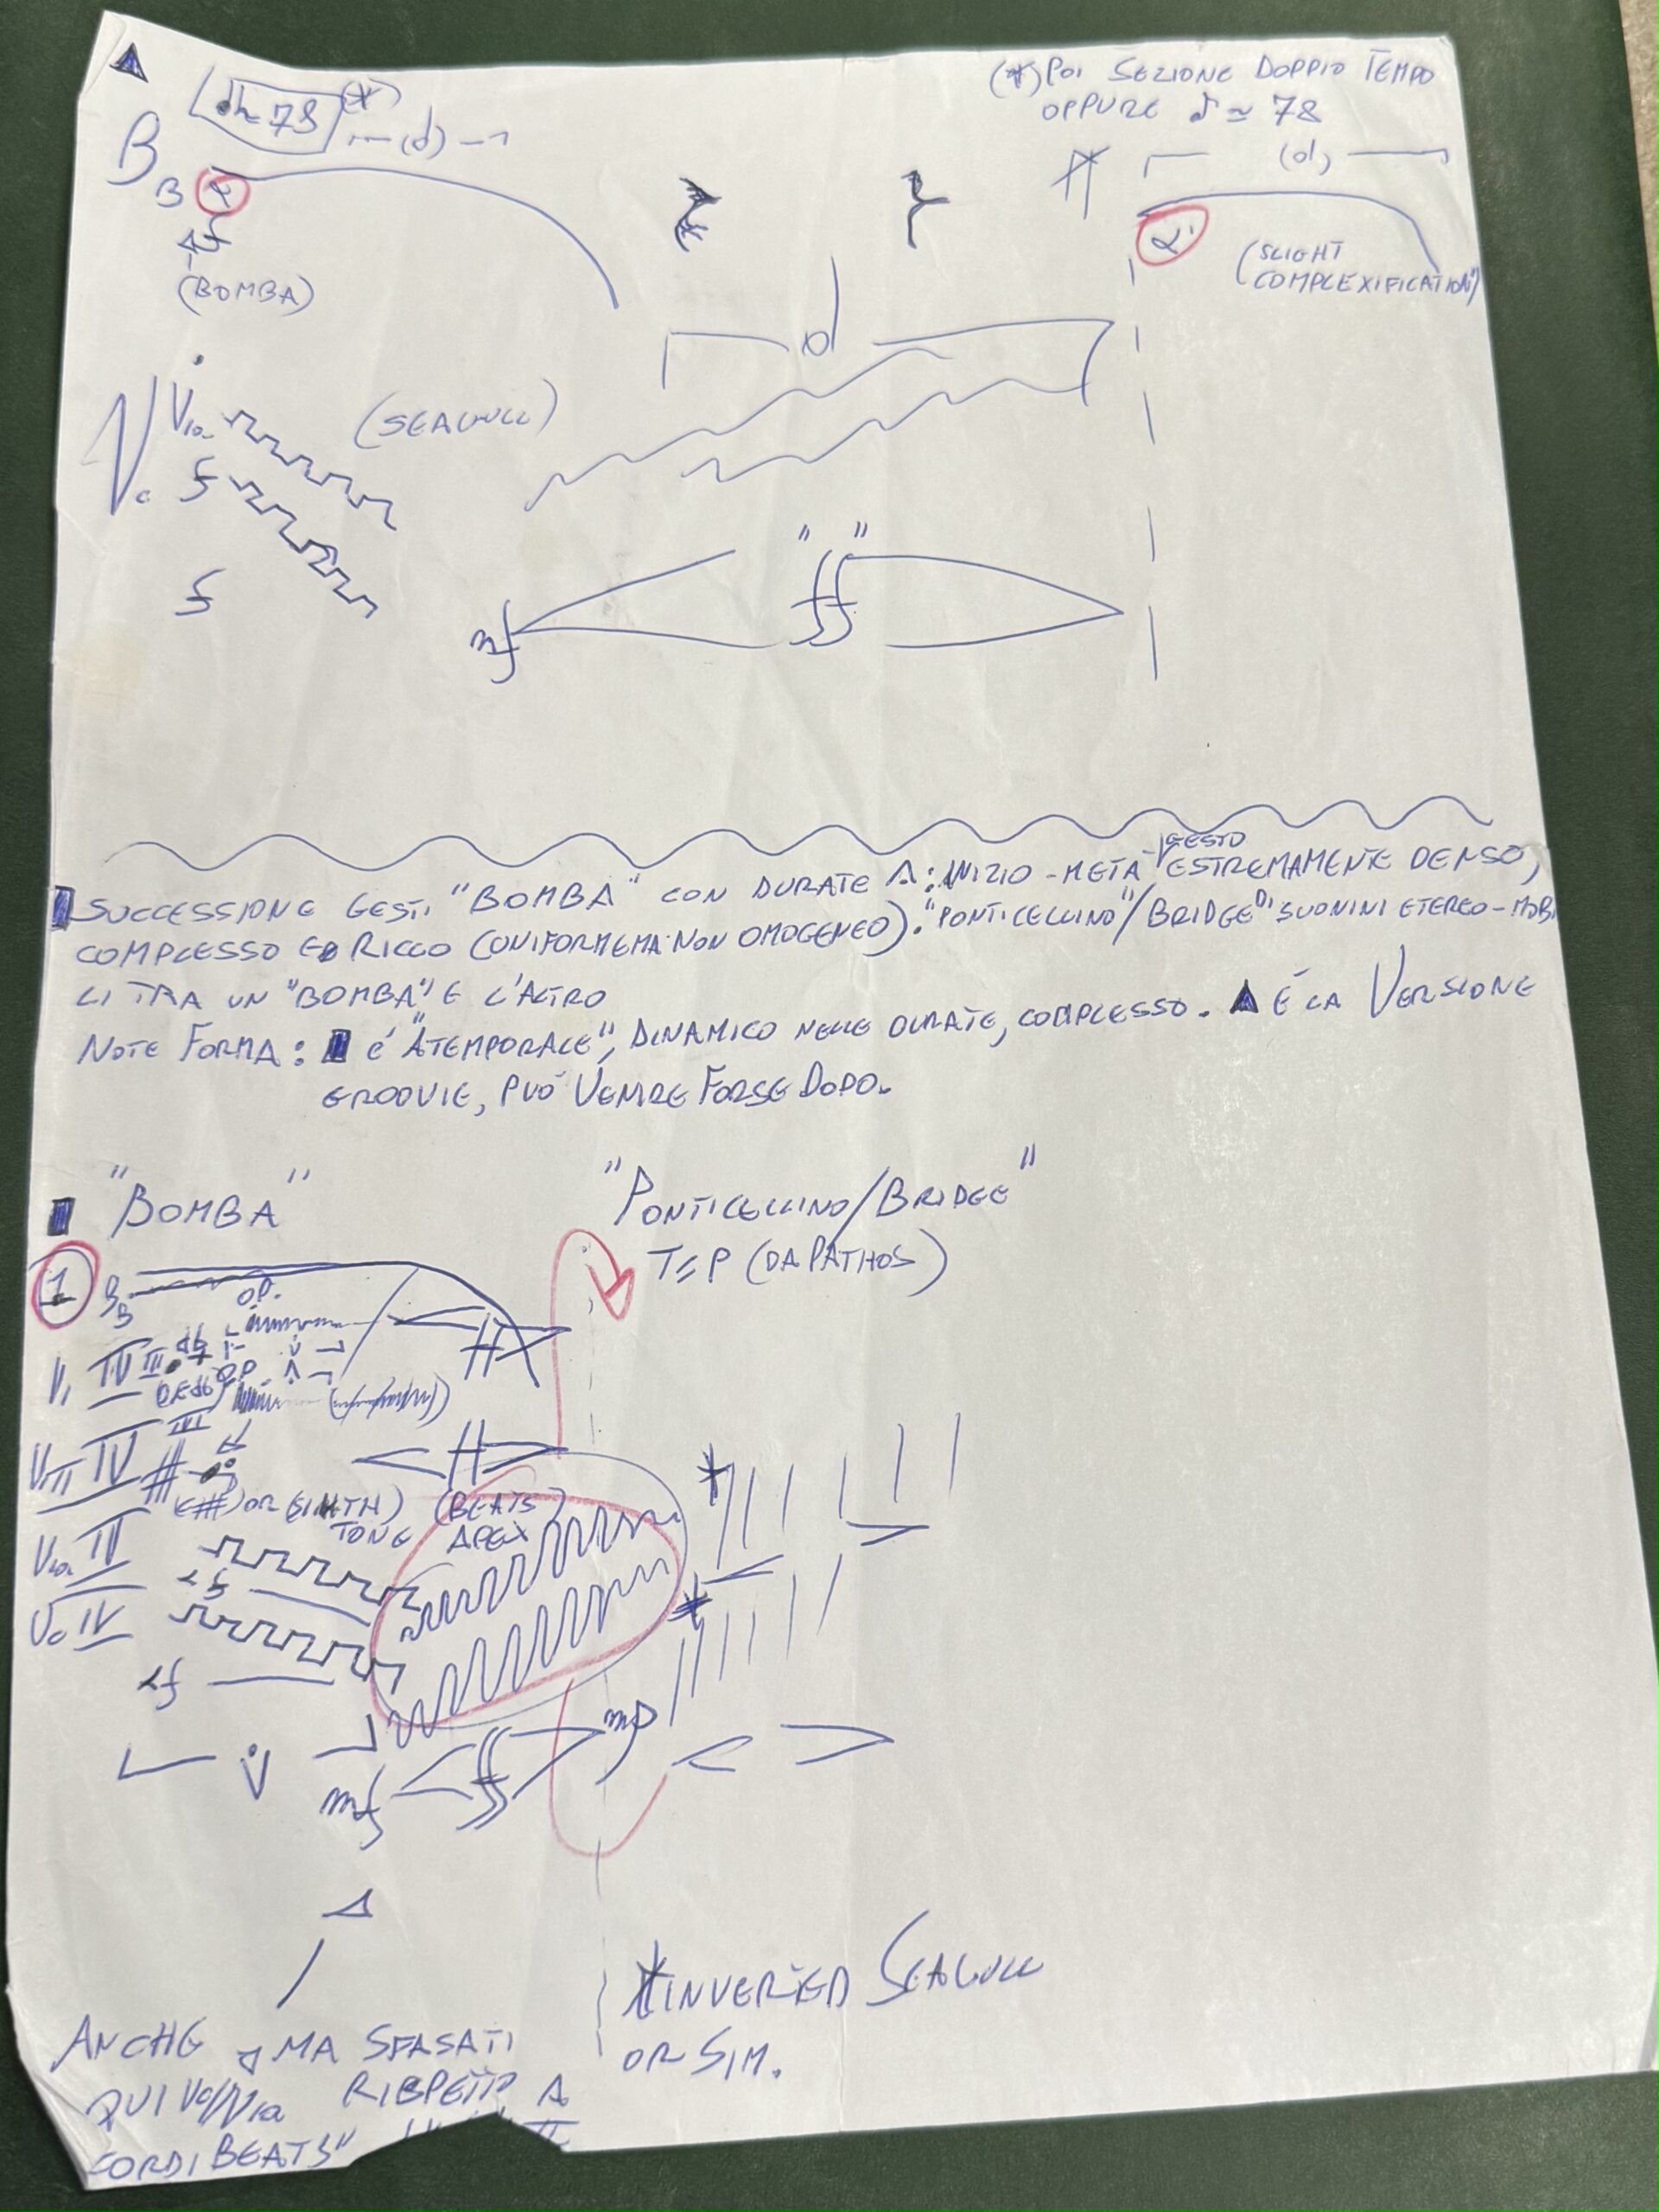 ♩≃78 (*)
(*) POI SEZIONE DOPPIO TEMPO
OPPURE ♪ ≃ 78
(d)
(d)
B
B α
f
(BOMBA)
α'
(SLIGHT
COMPLEXIFICATION)
d
Vla
(SEAGULL)
Vc f
f
mf "ff"
SUCCESSIONE GESTI "BOMBA" CON DURATE Δ: INIZIO-METÀ GESTO ESTREMAMENTE DENSO,
COMPLESSO ED RICCO (UNIFORME MA NON OMOGENEO). "PONTICELLINO"/BRIDGE" DI SUONINI ETEREO-MOBI
LI TRA UN "BOMBA" E L'ALTRO
NOTE FORMA: É "ATEMPORALE", DINAMICO NELLE DURATE, COMPLESSO. ▲ É LA VERSIONE
GROOVIE, PUÒ VENIRE FORSE DOPO.
"BOMBA"
"PONTICELLINO/BRIDGE"
T≤P (DA PATHOS)
1 B
B
O.P.
VI IV III
VII IV III
OR TONE (BEATS
APEX
Vla IV
f
Vc IV
f
mp
mf ff
ANCHE MA SFASATI
QUI Vc/Vla RISPETTO A
CORDI BEATS"
*INVERTED SEAGULL
OR SIM.